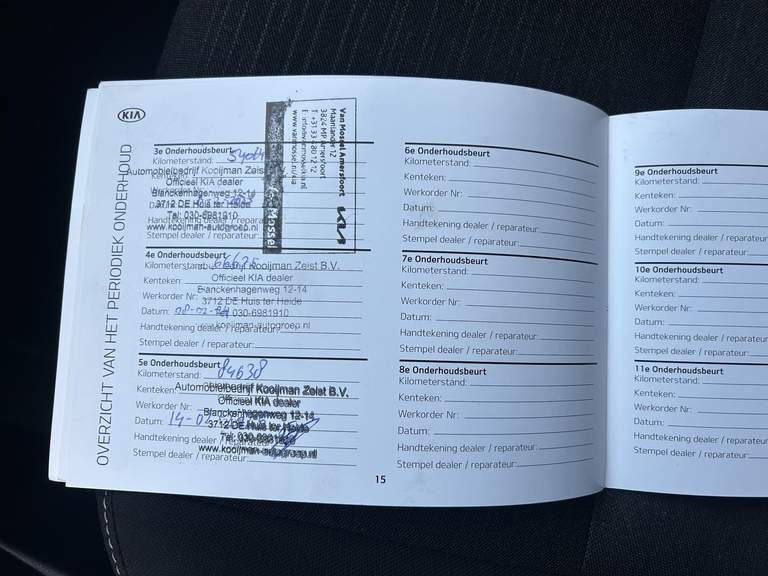 KIA
OVERZICHT VAN HET PERIODIEK ONDERHOUD
3e Onderhoudsbeurt
Kilometerstand:
Automobielbedrijf Kooijman Zeist B.V.
Kenteken:
Officieel KIA dealer
Blanckenhagenweg 12-14
3712 DE Huis ter Heide
Tel: 030-6981910
Handtekening dealer / reparateur:
www.kooijman-autogroep.nl
Stempel dealer / reparateur:
Van Mossel Amersfoort
Maanlander 12
3824 MP Amersfoort
T +31 33 480 12 12
www.vanmossel.nl/kia
KIA
Mossel
4e Onderhoudsbeurt
Kilometerstand: 66635
Kooijman Zeist B.V.
Officieel KIA dealer
Kenteken:
Blanckenhagenweg 12-14
Werkorder Nr:
3712 DE Huis ter Heide
Datum: 08-02-
030-6981910
Handtekening dealer / reparateur:
kooijman-autogroep.nl
Stempel dealer / reparateur:
5e Onderhoudsbeurt
Kilometerstand: 84638
Kenteken:
Automobielbedrijf Kooijman Zeist B.V.
Officieel KIA dealer
Werkorder Nr:
Blanckenhagenweg 12-14
3712 DE Huis ter Heide
Datum: 14-0
Tel: 030-6981910
Handtekening dealer / reparateur:
www.kooijman-autogroep.nl
Stempel dealer / reparateur:
6e Onderhoudsbeurt
Kilometerstand:
Kenteken:
Werkorder Nr:
Datum:
Handtekening dealer / reparateur:
Stempel dealer / reparateur:
7e Onderhoudsbeurt
Kilometerstand:
Kenteken:
Werkorder Nr:
Datum:
Handtekening dealer / reparateur:
Stempel dealer / reparateur:
8e Onderhoudsbeurt
Kilometerstand:
Kenteken:
Werkorder Nr:
Datum:
Handtekening dealer / reparateur:
Stempel dealer / reparateur:
15
9e Onderhoudsbeurt
Kilometerstand:
Kenteken:
Werkorder Nr:
Datum:
Handtekening dealer / reparateur:
Stempel dealer / reparateur:
10e Onderhoudsbeurt
Kilometerstand:
Kenteken:
Werkorder Nr:
Datum:
Handtekening dealer / reparateur:
Stempel dealer / reparateur:
11e Onderhoudsbeurt
Kilometerstand:
Kenteken:
Werkorder Nr:
Datum:
Handtekening dealer / reparateur:
Stempel dealer / reparateur: